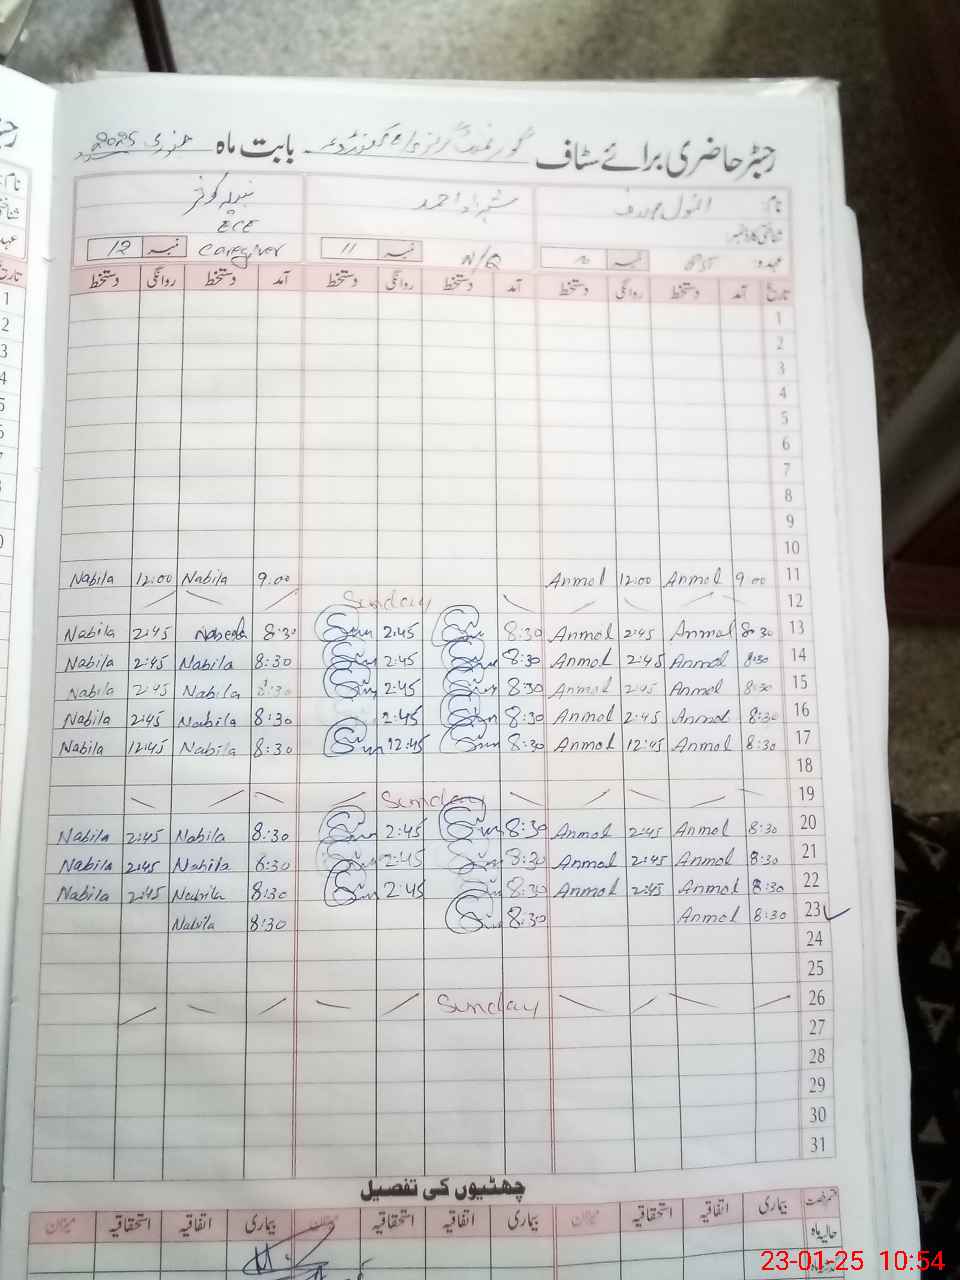 رجسٹر حاضری برائے سٹاف گورنمنٹ گرلز بابت ماہ جنوری 2025
نام: انمول شہزاد احمد نبیلہ کوثر
شناختی کارڈ نمبر: ECE
عہدہ: نمبر N/Q نمبر 11 Caregiver نمبر 12
تاریخ آمد دستخط روانگی دستخط آمد دستخط روانگی دستخط آمد دستخط روانگی دستخط
1
2
3
4
5
6
7
8
9
10
11 9.00 Anmol 12:00 Anmol 9.00 Nabila 12:00 Nabila
12 Sunday
13 8:30 Anmol 2:45 Anmol 8:30 2:45 8:30 Nabeela 2:45 Nabila
14 8:30 Anmol 2:45 Anmol 8:30 2:45 8:30 Nabila 2:45 Nabila
15 8:30 Anmol 2:45 Anmol 8:30 2:45 8:30 Nabila 2:45 Nabila
16 8:30 Anmol 2:45 Anmol 8:30 2:45 8:30 Nabila 2:45 Nabila
17 8:30 Anmol 12:45 Anmol 8:30 12:45 8:30 Nabila 12:45 Nabila
18
19 Sunday
20 8:30 Anmol 2:45 Anmol 8:30 2:45 8:30 Nabila 2:45 Nabila
21 8:30 Anmol 2:45 Anmol 8:30 2:45 8:30 Nabila 2:45 Nabila
22 8:30 Anmol 2:45 Anmol 8:30 2:45 8:30 Nabila 2:45 Nabila
23 8:30 Anmol 8:30 8:30 Nabila
24
25
26 Sunday
27
28
29
30
31
چھٹیوں کی تفصیل
قسم رخصت بیماری اتفاقیہ استحقاقیہ میزان بیماری اتفاقیہ استحقاقیہ میزان بیماری اتفاقیہ استحقاقیہ میزان
حالیہ ماہ
23-01-25 10:54